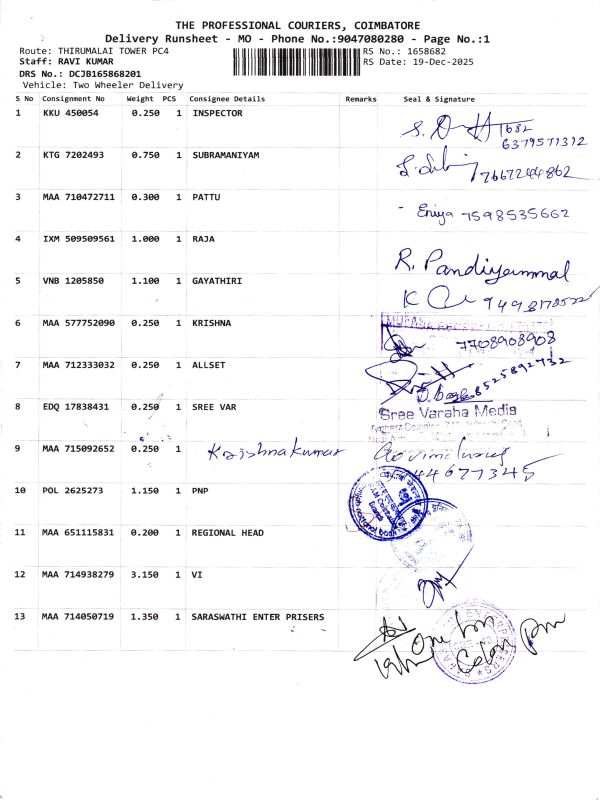 THE PROFESSIONAL COURIERS, COIMBATORE
Delivery Runsheet - MO - Phone No.:9047080280 - Page No.:1
Route: THIRUMALAI TOWER PC4
RS No.: 1658682
Staff: RAVI KUMAR
RS Date: 19-Dec-2025
DRS No.: DCJB165868201
Vehicle: Two Wheeler Delivery
S No Consignment No Weight PCS Consignee Details Remarks Seal & Signature
1 KKU 450054 0.250 1 INSPECTOR
1682
6379571312
2 KTG 7202493 0.750 1 SUBRAMANIYAM
7667244862
3 MAA 710472711 0.300 1 PATTU
Eniya 7598535662
4 IXM 509509561 1.000 1 RAJA
R. Pandiyammal
5 VNB 1205850 1.100 1 GAYATHIRI
6 MAA 577752090 0.250 1 KRISHNA
7708908908
7 MAA 712333032 0.250 1 ALLSET
8525892732
8 EDQ 17838431 0.250 1 SREE VAR
Sree Varaha Media
9 MAA 715092652 0.250 1 Krishnakumar
44677345
10 POL 2625273 1.150 1 PNP
11 MAA 651115831 0.200 1 REGIONAL HEAD
12 MAA 714938279 3.150 1 VI
13 MAA 714050719 1.350 1 SARASWATHI ENTER PRISERS